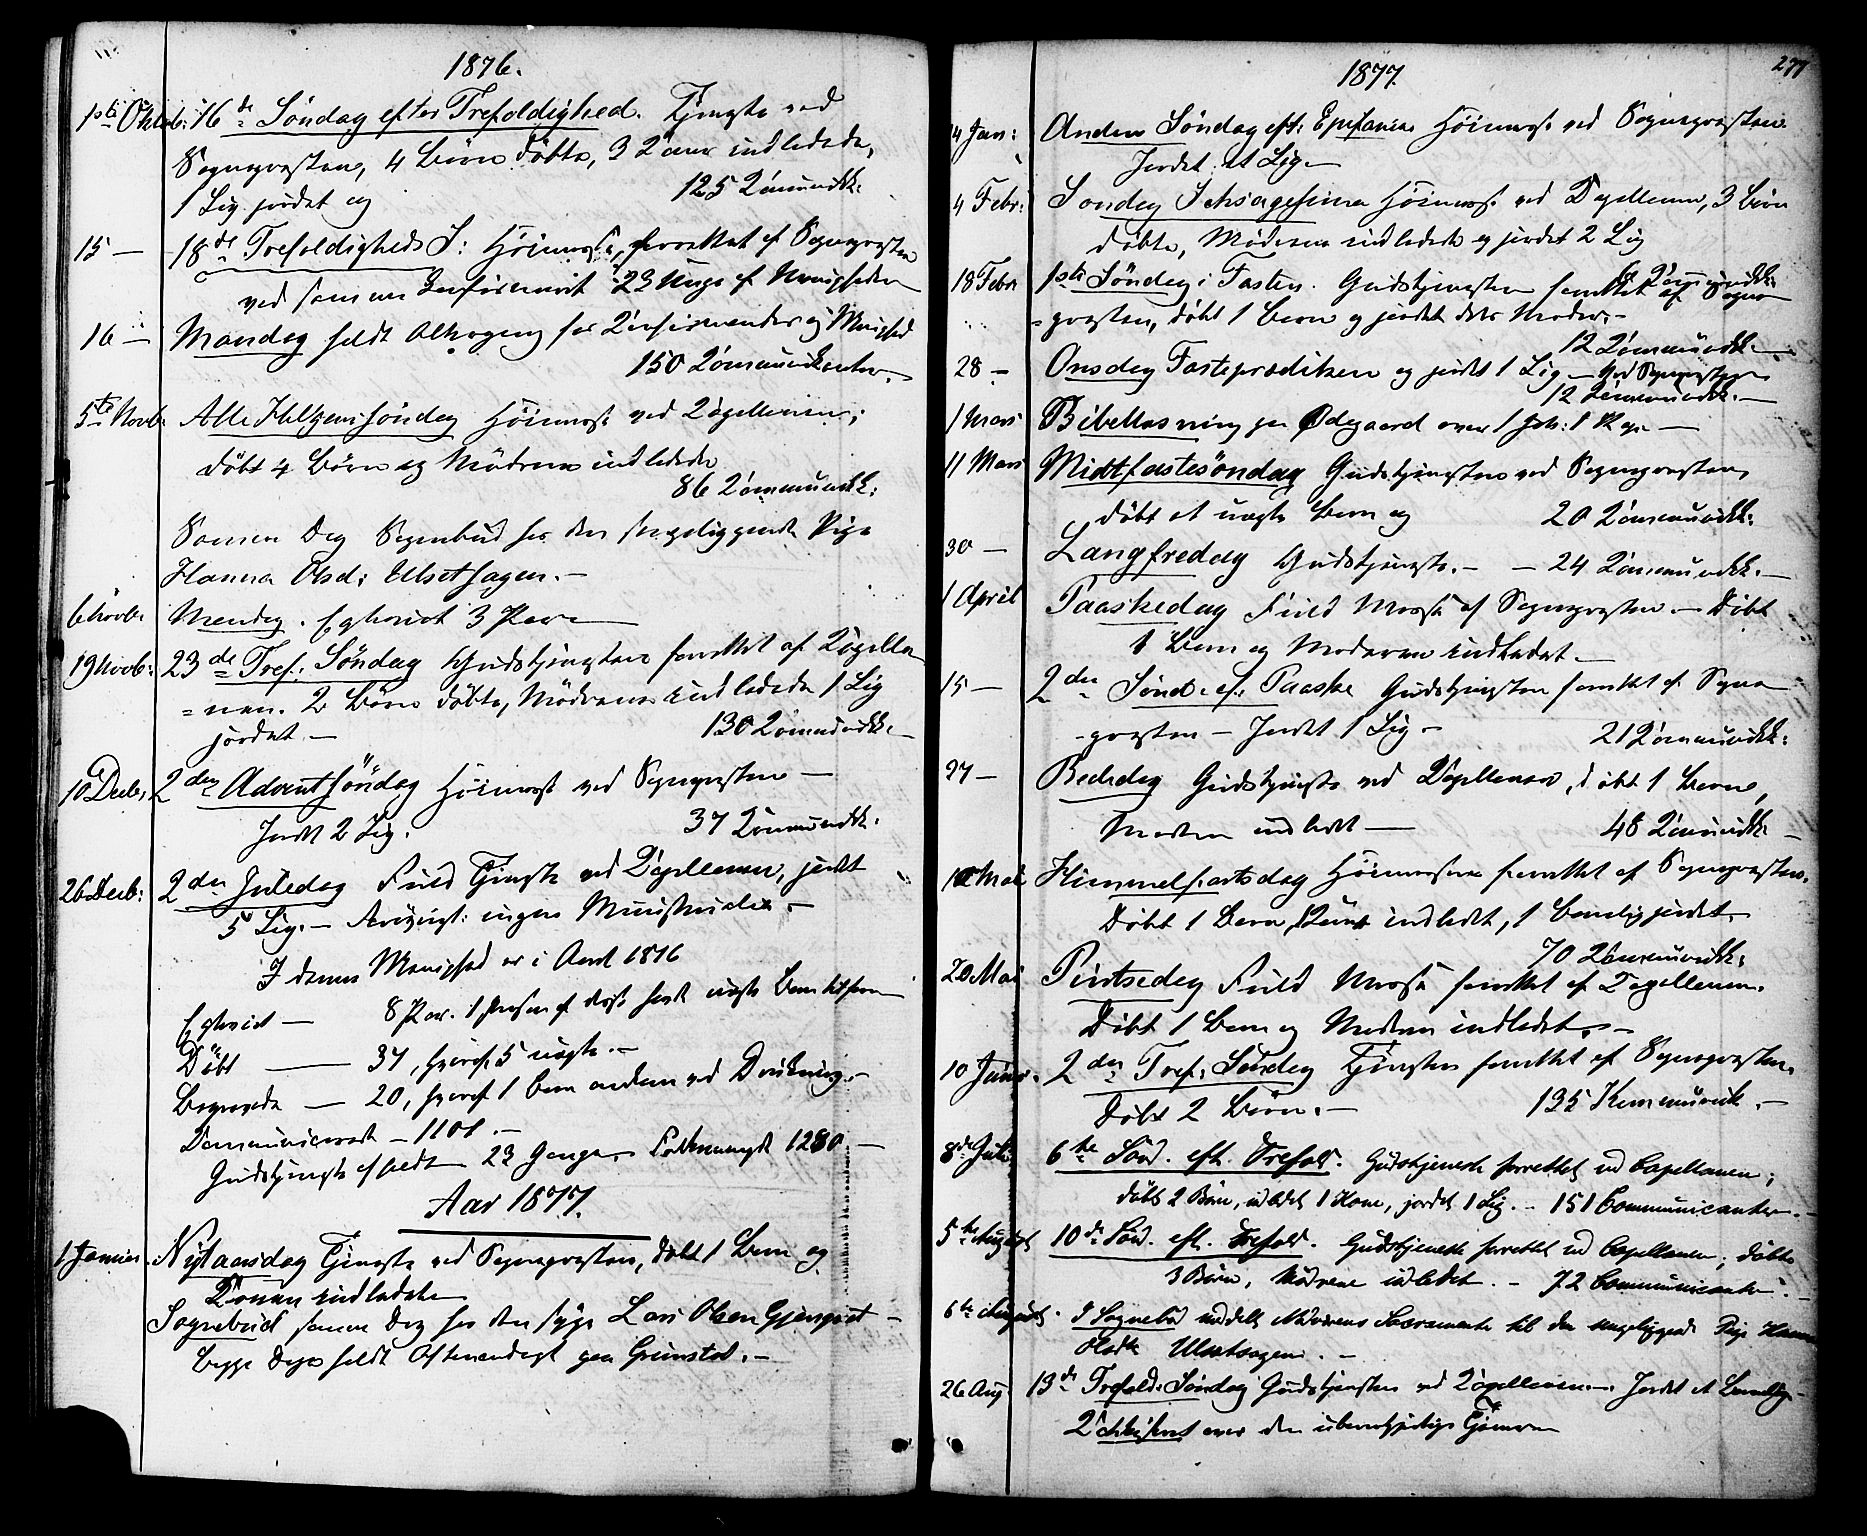 1876.
1ste Oktob: 16de Søndag efter Trefoldighed. Tjeneste ved
Sognepresten, 4 Børn døbte, 3 Koner indledede,
1 Lig jordet og 125 Kommunikk:
15 — 18de Trefoldigheds S: Höimesse, forrettet af Sognepresten
ved samme Konfirmeret 23 Unge af Menigheden
16 — Mandag holdt Altergang for Konfirmander og Menighed
150 Kommunikanter.
5te Novb: Alle Helgens Söndag Höimesse ved Kapellanen;
döbt 4 Börn og Mödrene indledede
86 Kommunikk:
Samme Dag Sognebud hos den sengeliggende Pige
Hanna Olsd: Ulsethagen. —
6 Novb: Mandag. Egteviet 3 Par
19 Novb: 23de Tref: Söndag Gudstjenesten forrettet af Kapella-
=nen. 2 Börn döbte, Mödrene indledede 1 Lig
jordet. — 130 Kommunikk. —
10 Decb: 2den Advent Söndag Höimesse ved Sognepresten —
Jordet 2 Lig. 37 Kommunikk.
26 Decb: 2den Juledag Fuld Tjeneste ved Kapellanen, jordet
5 Lig. — Forövrigt ingen Ministerialia. —
I denne Menighed er i Aaret 1876
Egteviet — 8 Par.
Döbt — 37, hvoraf 5 uægte. —
Begravede — 20, hvoraf 1 Barn omkom ved Drukning. —
Kommunicerede — 1101. —
Gudstjeneste afholdt 23 Gange. Folkemængde 1280. —
Aar 1877.
1 Januar. Nytaarsdag Tjeneste ved Sognepresten, döbt 1 Barn og
Konen indledet
Sognebud samme Dag hos den syge Lars Olsen Gjengset —
begge Dage holdt Aftensandagt paa Grimstad. —
1877. 277
14 Jan: Anden Söndag eft: Epifanias Höimesse ved Sognepresten
Jordet et Lig. —
4 Febr: Söndag Seksagesima Höimesse ved Kapellanen, 3 Börn
döbte, Mödrene indledede og jordet 2 Lig
Kommunikk:
18 Febr: 1ste Söndag i Fasten. Gudstjenesten forrettet af Sogne-
=presten, döbt 1 Barn og jordet dets Moder. —
12 Kommunikk. —
28 — Onsdag Fasteprædiken og jordet 1 Lig — ved Sognepresten
12 Kommunikk. —
1 Mars Bibellæsning paa Ødegaard over 1 Joh: 1 Kap. —
11 Mars Midtfastesöndag Gudstjenesten ved Sognepresten,
döbt et uægte Barn og 20 Kommunikk:
30 — Langfredag Gudstjeneste. — 24 Kommunikk. —
1 April Paaskedag Fuld Messe af Sognepresten. — Döbt
1 Barn og Moderen indledet. —
15 — 2den Sönd: ef: Paaske Gudstjenesten forrettet af Sogne-
-presten — Jordet 1 Lig — 21 Kommunikk:
27 — Bededag Gudstjeneste ved Kapellanen, döbt 1 Barn,
Moderen indledet — 48 Kommunikk —
10 Mai Himmelfartsdag Höimessen forrettet af Sognepresten.
Döbt 1 Barn, Konen indledet, 1 Barnelig jordet.
70 Kommunikk:
20 Mai Pintsedag Fuld Messe forrettet af Kapellanen.
Döbt 1 Barn og Moderen indledet. —
10 Juni. 2den Tref: Söndag Tjenesten forrettet af Sognepresten.
Döbt 2 Börn. — 135 Kommunik. —
8de Juli. 6te Sönd. eft. Trefold. Gudstjeneste forrettet ved Capellanen;
döbt 2 Börn, indledet 1 Kone, jordet 1 Lig. — 151 Communicanter. —
5te August 10de Sönd. eft. Trefold. Gudstjeneste forrettet ved Capellanen; döbte
3 Börn, Mödrene indledet. — 72 Communicanter. —
6te August. I Sognebud meddelt Alterens Sacramente til den sengeliggende Pige Hanna
Ulsethagen. —
26 Aug. 13de Trefold: Söndag Gudstjenesten ved Kapellanen. — Jordet et Barnelig. —
over den